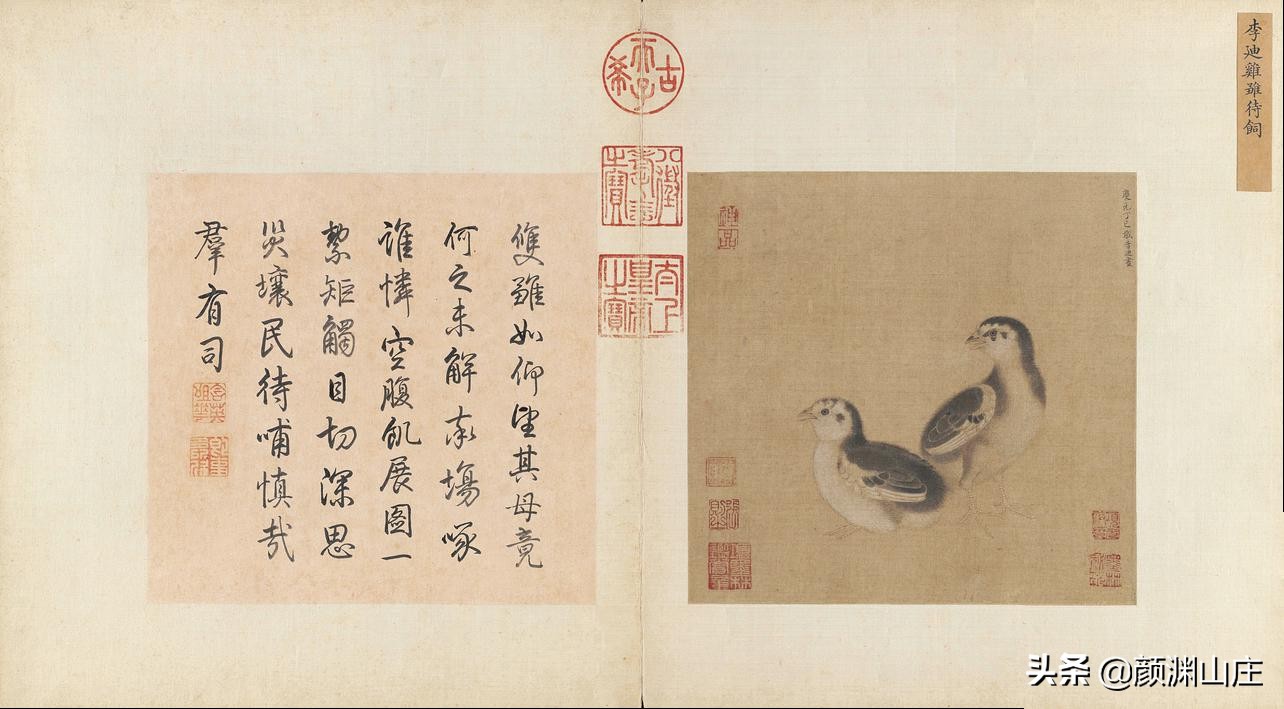 李迪雞雛待飼
慶元丁巳歲李迪畫
古希天子
八徵耄念之寶
太上皇帝之寶
雙雛如仰望其母竟
何之未解求場啄
誰憐空腹飢展圖一
絜矩觸目切深思
災壤民待哺慎哉
羣有司
头条 @颜渊山庄